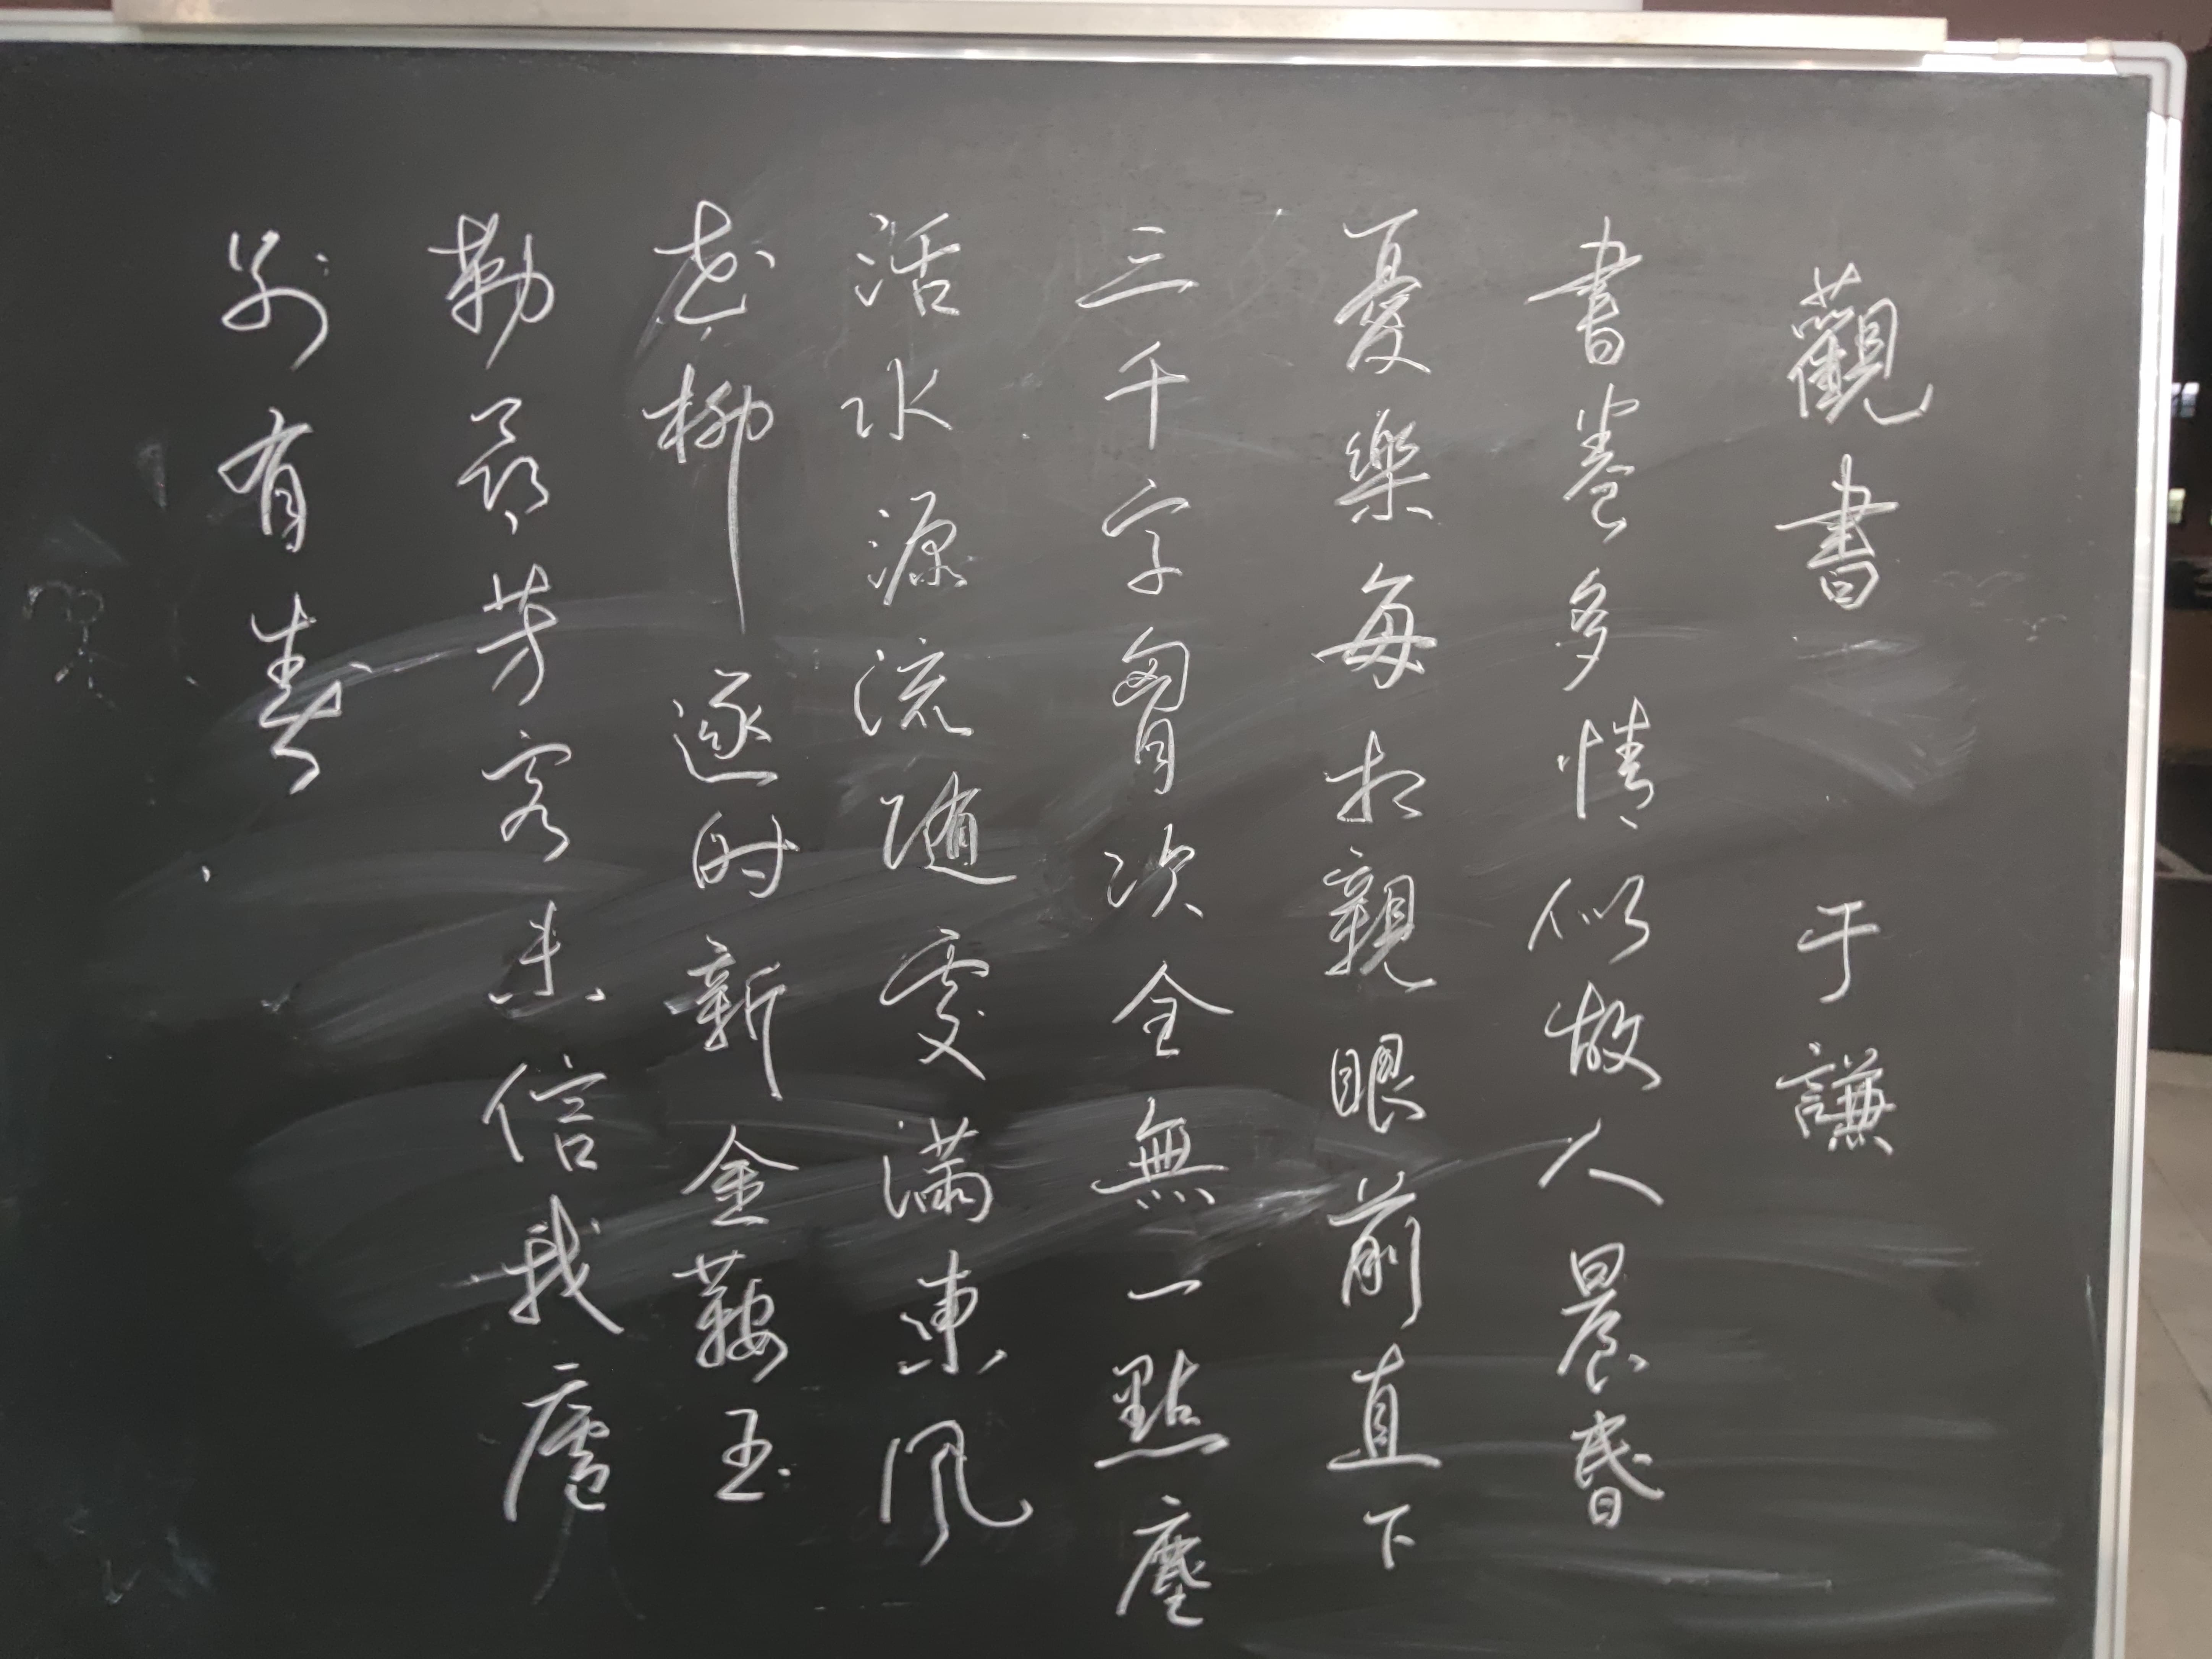 觀書 于謙
書卷多情似故人晨昏
憂樂每相親眼前直下
三千字胷次全無一點塵
活水源流随處滿東風
花柳逐時新金鞍玉
勒尋芳客未信我廬
別有春